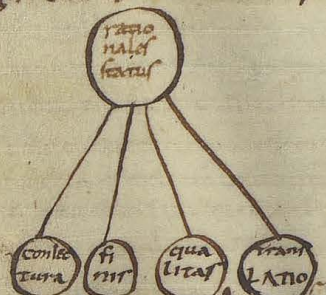 ratio
nales
status
coniec
tura
fi
nis
qua
litas
trans
LATIO